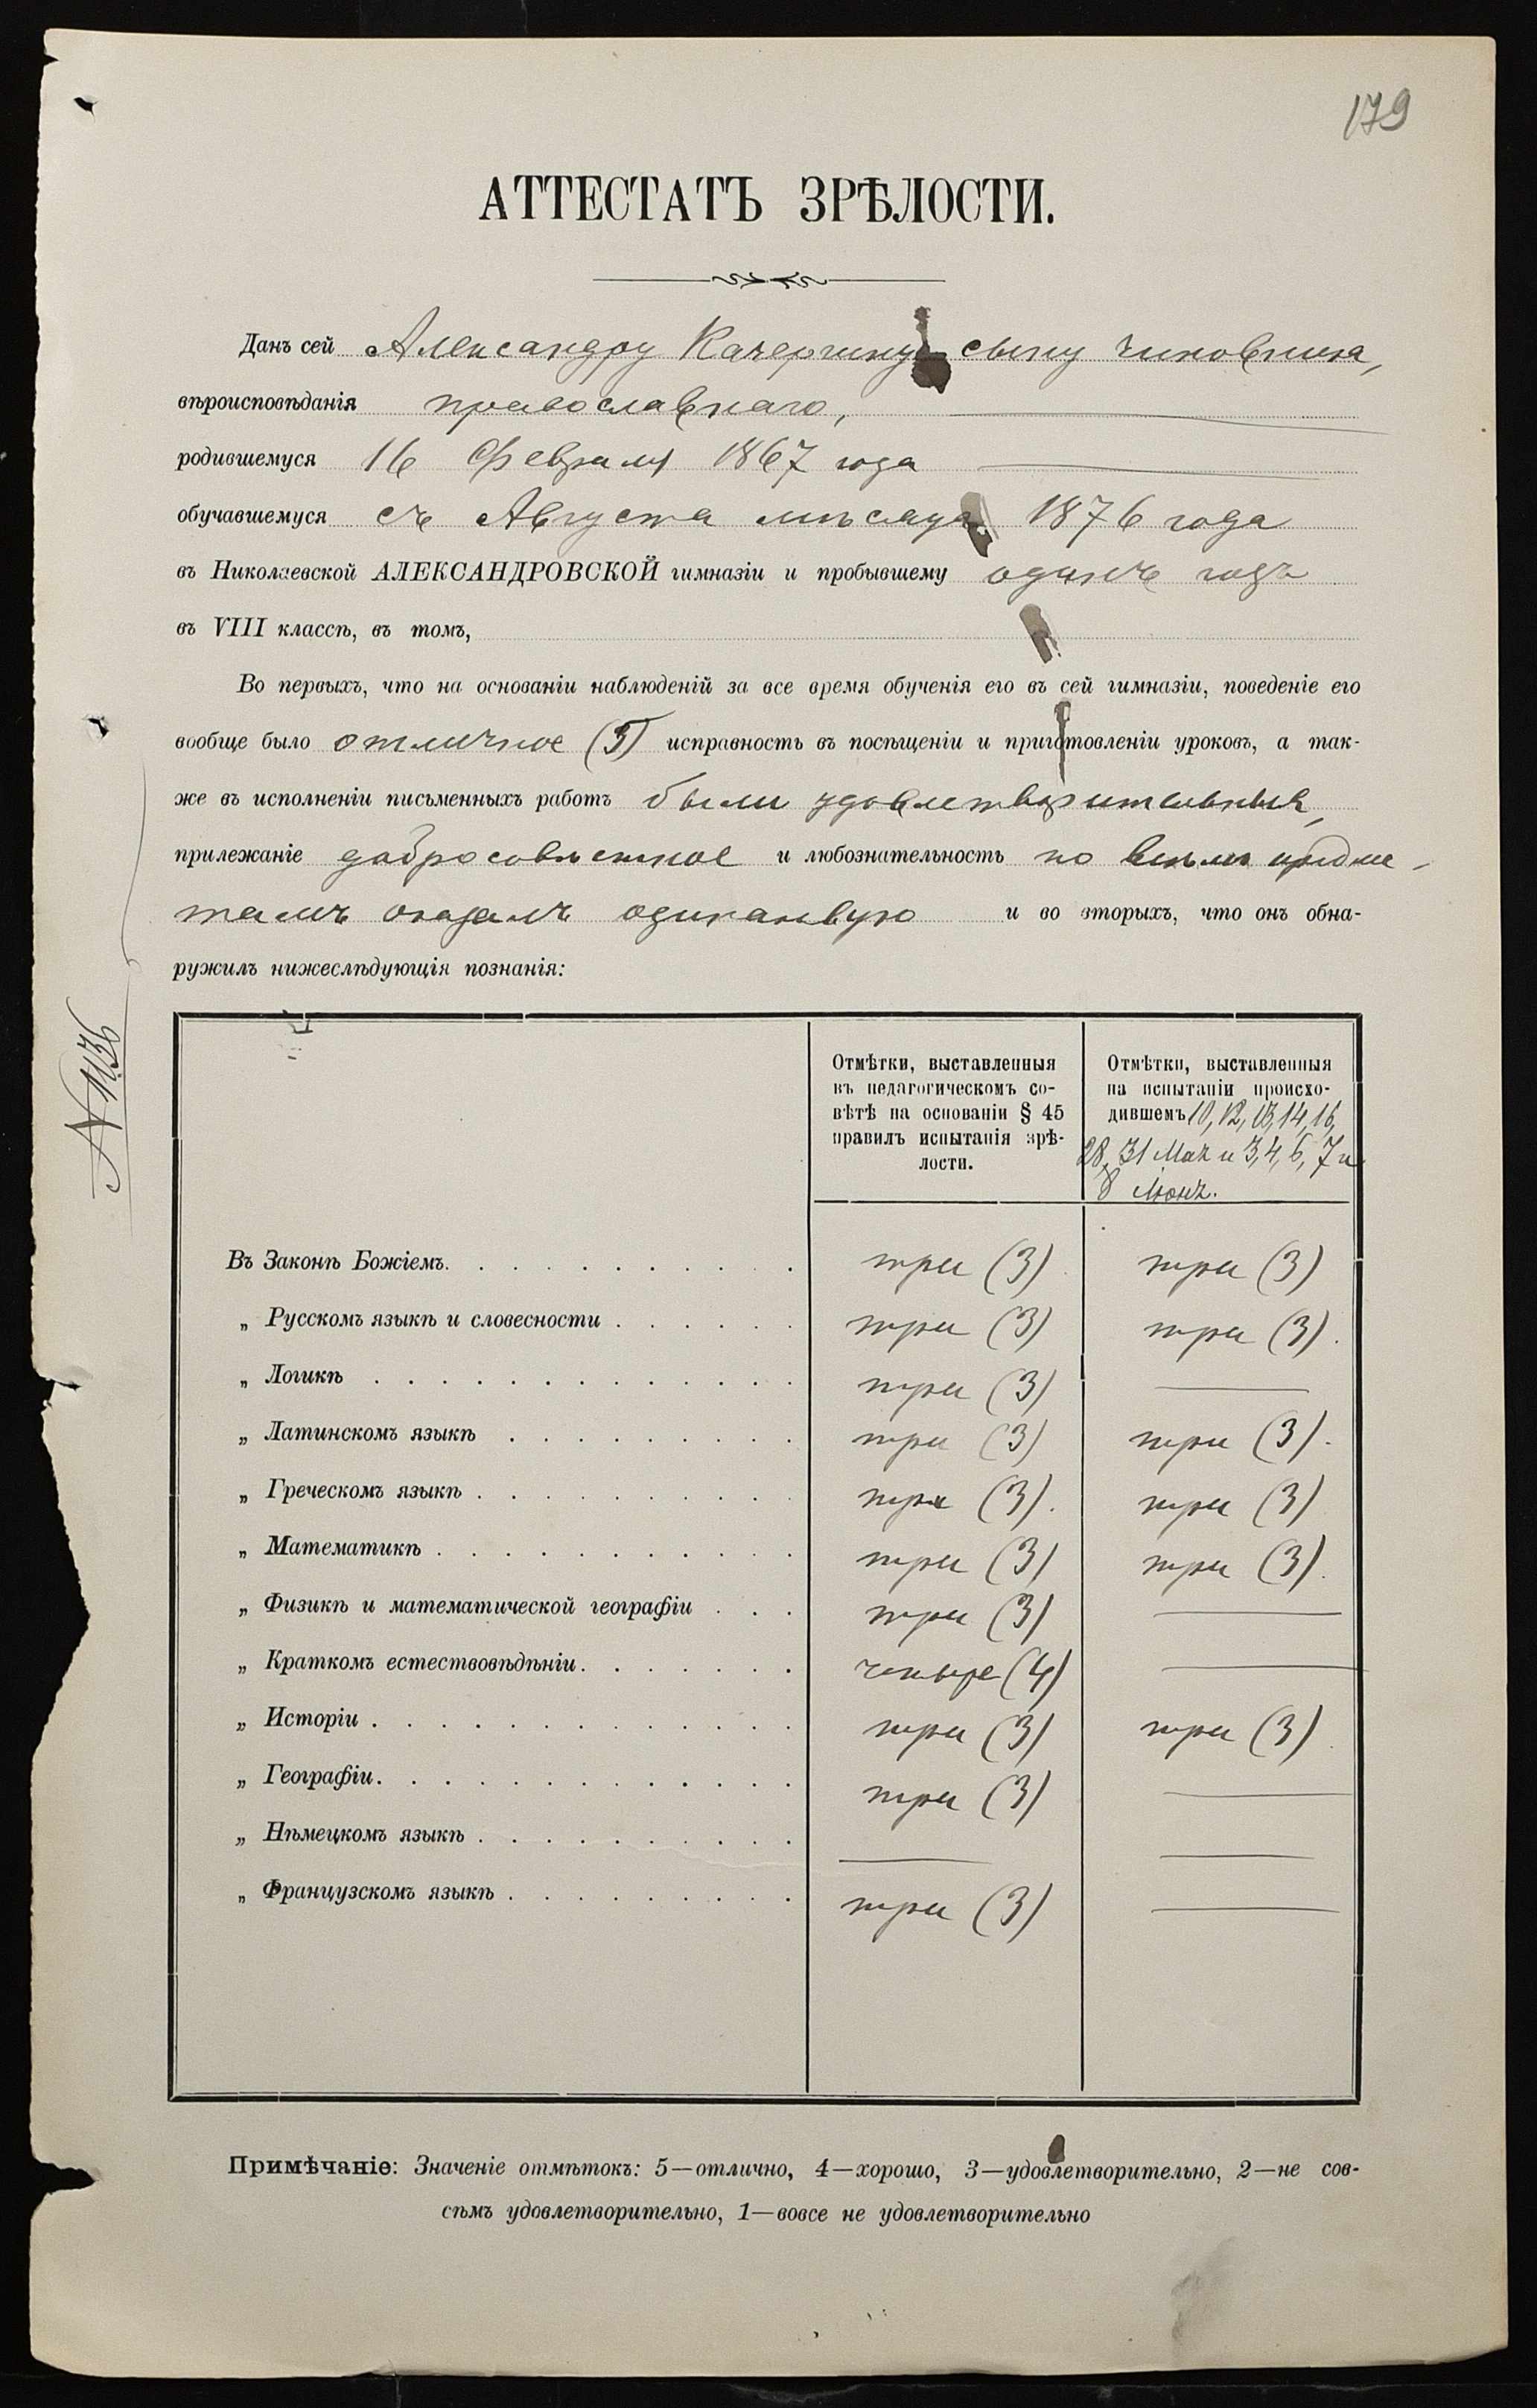 179
АТТЕСТАТЪ ЗРѢЛОСТИ.
Данъ сей Александру Качергину сыну чиновника,
вѣроисповѣданія православнаго,
родившемуся 16 Февраля 1867 года
обучавшемуся съ Августа мѣсяца 1876 года
въ Николаевской АЛЕКСАНДРОВСКОЙ гимназіи и пробывшему одинъ годъ
въ VIII классѣ, въ томъ,
Во первыхъ, что на основаніи наблюденій за все время обученія его въ сей гимназіи, поведеніе его
вообще было отличное (5) исправность въ посѣщеніи и приготовленіи уроковъ, а так-
же въ исполненіи письменныхъ работъ были удовлетворительныя,
прилежаніе добросовѣстное и любознательность по всѣмъ предме-
тамъ оказалъ одинаквую и во вторыхъ, что онъ обна-
ружилъ нижеслѣдующія познанія:
N 1136
Отмѣтки, выставленныя въ педагогическомъ со-
вѣтѣ на основаніи § 45
правилъ испытанія зрѣ-
лости.
Отмѣтки, выставленныя
на испытаніи происхо-
дившемъ 10, 12, 13, 14, 16,
28, 31 Мая и 3, 4, 6, 7 и
8 Іюня.
Въ Законѣ Божіемъ. . . . . . . . . . . три (3) три (3)
„ Русскомъ языкѣ и словесности . . . . . . три (3) три (3).
„ Логикѣ . . . . . . . . . . . . . три (3)
„ Латинскомъ языкѣ . . . . . . . . . три (3) три (3).
„ Греческомъ языкѣ . . . . . . . . . . три (3). три (3)
„ Математикѣ . . . . . . . . . . . три (3) три (3).
„ Физикѣ и математической географіи . . . три (3)
„ Краткомъ естествовѣдѣніи. . . . . . . четыре (4)
„ Исторіи . . . . . . . . . . . . . три (3) три (3)
„ Географіи. . . . . . . . . . . . . три (3)
„ Нѣмецкомъ языкѣ . . . . . . . . . .
„ Французскомъ языкѣ . . . . . . . . . три (3)
Примѣчаніе: Значеніе отмѣтокъ: 5—отлично, 4—хорошо, 3—удовлетворительно, 2—не сов-
сѣмъ удовлетворительно, 1—вовсе не удовлетворительно